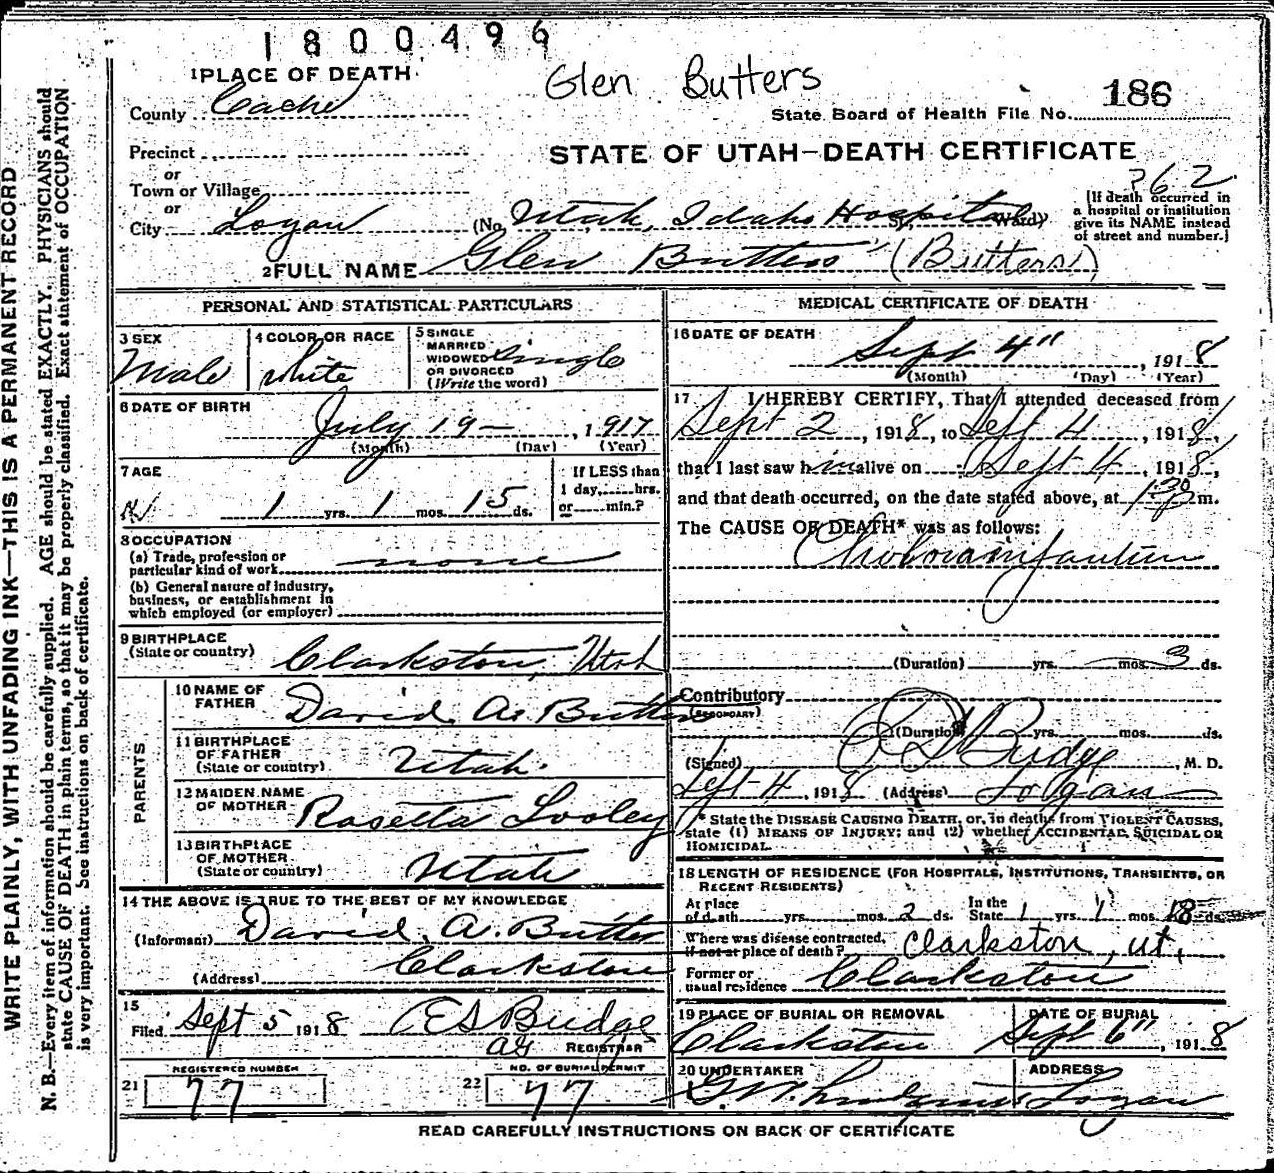 1800496
1 PLACE OF DEATH
Glen Butters
186
County Cache
State Board of Health File No.
Precinct
STATE OF UTAH—DEATH CERTIFICATE
or
Town or Village
or
City Logan
(No. Utah, Idaho Hospital St., Ward)
?62
[If death occurred in
a hospital or institution
give its NAME instead
of street and number.]
2 FULL NAME Glen Butters (Butters)
PERSONAL AND STATISTICAL PARTICULARS
3 SEX
Male
4 COLOR OR RACE
White
5 SINGLE
MARRIED
WIDOWED
OR DIVORCED
(Write the word)
single
6 DATE OF BIRTH
July 19 — , 1917
(Month) (Day) (Year)
7 AGE
1 yrs. 1 mos. 15 ds.
If LESS than
1 day, hrs.
or min.?
8 OCCUPATION
(a) Trade, profession or
particular kind of work none
(b) General nature of industry,
business, or establishment in
which employed (or employer)
9 BIRTHPLACE
(State or country) Clarkston, Utah
PARENTS
10 NAME OF
FATHER David A. Butters
11 BIRTHPLACE
OF FATHER
(State or country) Utah.
12 MAIDEN NAME
OF MOTHER Rosetta Looley
13 BIRTHPLACE
OF MOTHER
(State or country) Utah
14 THE ABOVE IS TRUE TO THE BEST OF MY KNOWLEDGE
(Informant) David. A. Butters
(Address) Clarkston
15
Filed Sept 5 1918 E S Budge
REGISTRAR
REGISTERED NUMBER
21 77
NO. OF BURIAL PERMIT
22 77
MEDICAL CERTIFICATE OF DEATH
16 DATE OF DEATH
Sept 4" , 1918
(Month) (Day) (Year)
17 I HEREBY CERTIFY, That I attended deceased from
Sept 2 , 1918, to Sept 4 , 1918,
that I last saw him alive on Sept 4, 1918,
and that death occurred, on the date stated above, at 1:30 m.
The CAUSE OF DEATH* was as follows:
Cholera infantum
(Duration) yrs. mos. 3 ds.
Contributory
(SECONDARY)
(Duration) yrs. mos. ds.
(Signed) Budge, M. D.
Sept 4, 1918 (Address) Logan
* State the DISEASE CAUSING DEATH, or, in deaths from VIOLENT CAUSES,
state (1) MEANS OF INJURY; and (2) whether ACCIDENTAL, SUICIDAL OR
HOMICIDAL.
18 LENGTH OF RESIDENCE (FOR HOSPITALS, INSTITUTIONS, TRANSIENTS, OR
RECENT RESIDENTS)
At place
of death yrs. mos. 2 ds.
In the
State 1 yrs. 1 mos. 18 ds.
Where was disease contracted,
if not at place of death? Clarkston, ut,
Former or
usual residence Clarkston
19 PLACE OF BURIAL OR REMOVAL
Clarkston
DATE OF BURIAL
Sept 6", 1918
20 UNDERTAKER
G.W. Lindquist
ADDRESS
Logan
READ CAREFULLY INSTRUCTIONS ON BACK OF CERTIFICATE
WRITE PLAINLY, WITH UNFADING INK—THIS IS A PERMANENT RECORD
N. B.—Every item of information should be carefully supplied. AGE should be stated EXACTLY. PHYSICIANS should
state CAUSE OF DEATH in plain terms, so that it may be properly classified. Exact statement of OCCUPATION
is very important. See instructions on back of certificate.